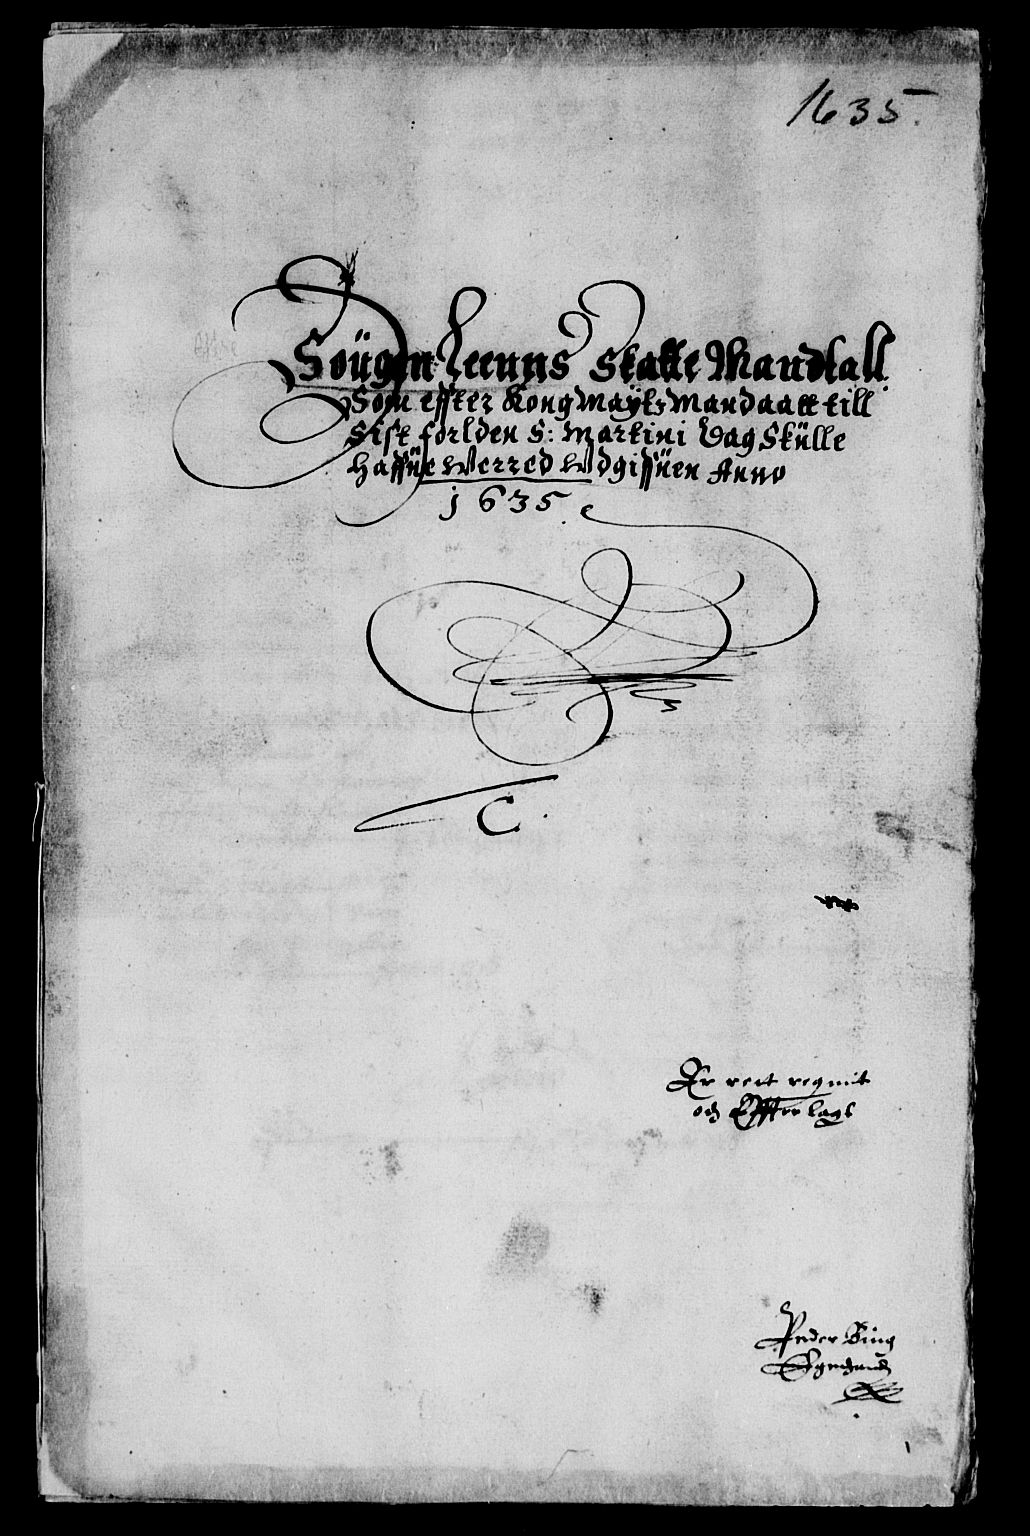 1635.
Soügen Leenns Skatte Mandtall
Som effter Kong Maytz Mandaatt till
Sist forlden S: Martini Dag Skülle
Haffüe Werred Wdgiffüen Anno
1635.
C.
Er rett regnit
och Effter lags
Peder Bing
Egenhand